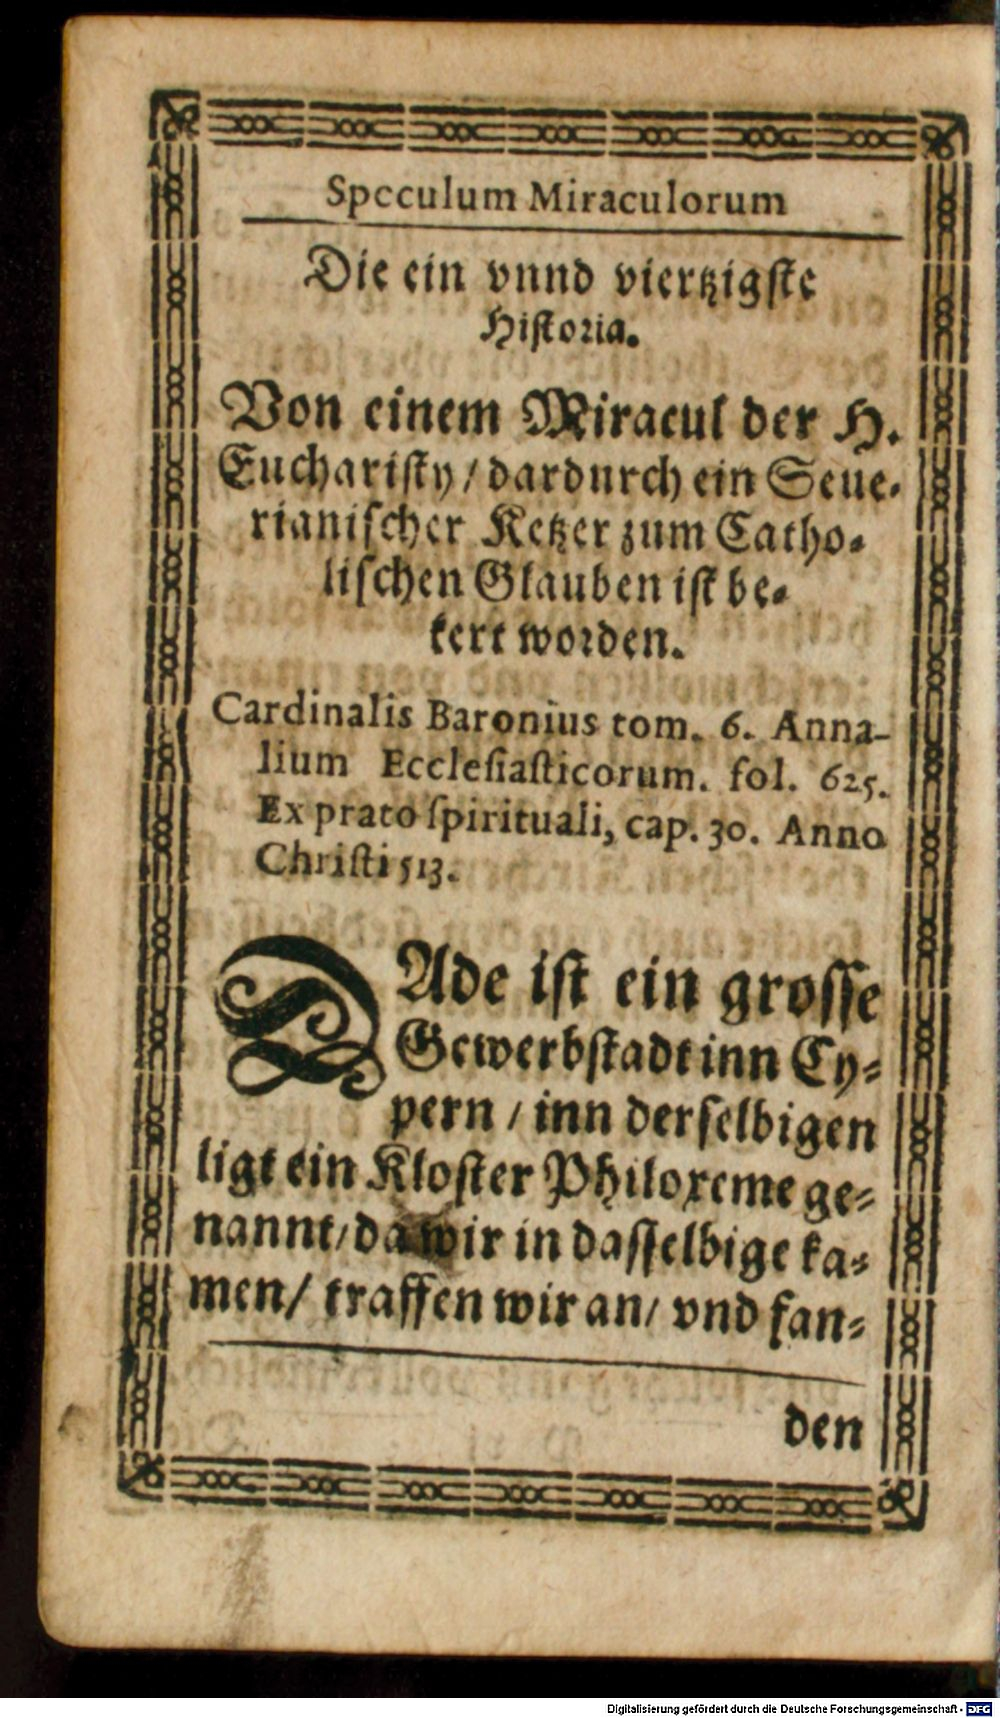 Speculum Miraculorum
Die ein vnnd viertzigste
Historia.
Von einem Miracul der H.
Eucharisty / dardurch ein Seue-
rianischer Ketzer zum Catho-
lischen Glauben ist be-
kert worden.
Cardinalis Baronius tom. 6. Anna-
lium Ecclesiasticorum. fol. 625.
Ex prato spirituali, cap. 30. Anno
Christi 513.
DAde ist ein grosse
Gewerbstadt inn Cy-
pern / inn derselbigen
ligt ein Kloster Philoxeme ge-
nannt / da wir in dasselbige ka-
men / traffen wir an / vnd fan-
den
Digitalisierung gefördert durch die Deutsche Forschungsgemeinschaft - DFG